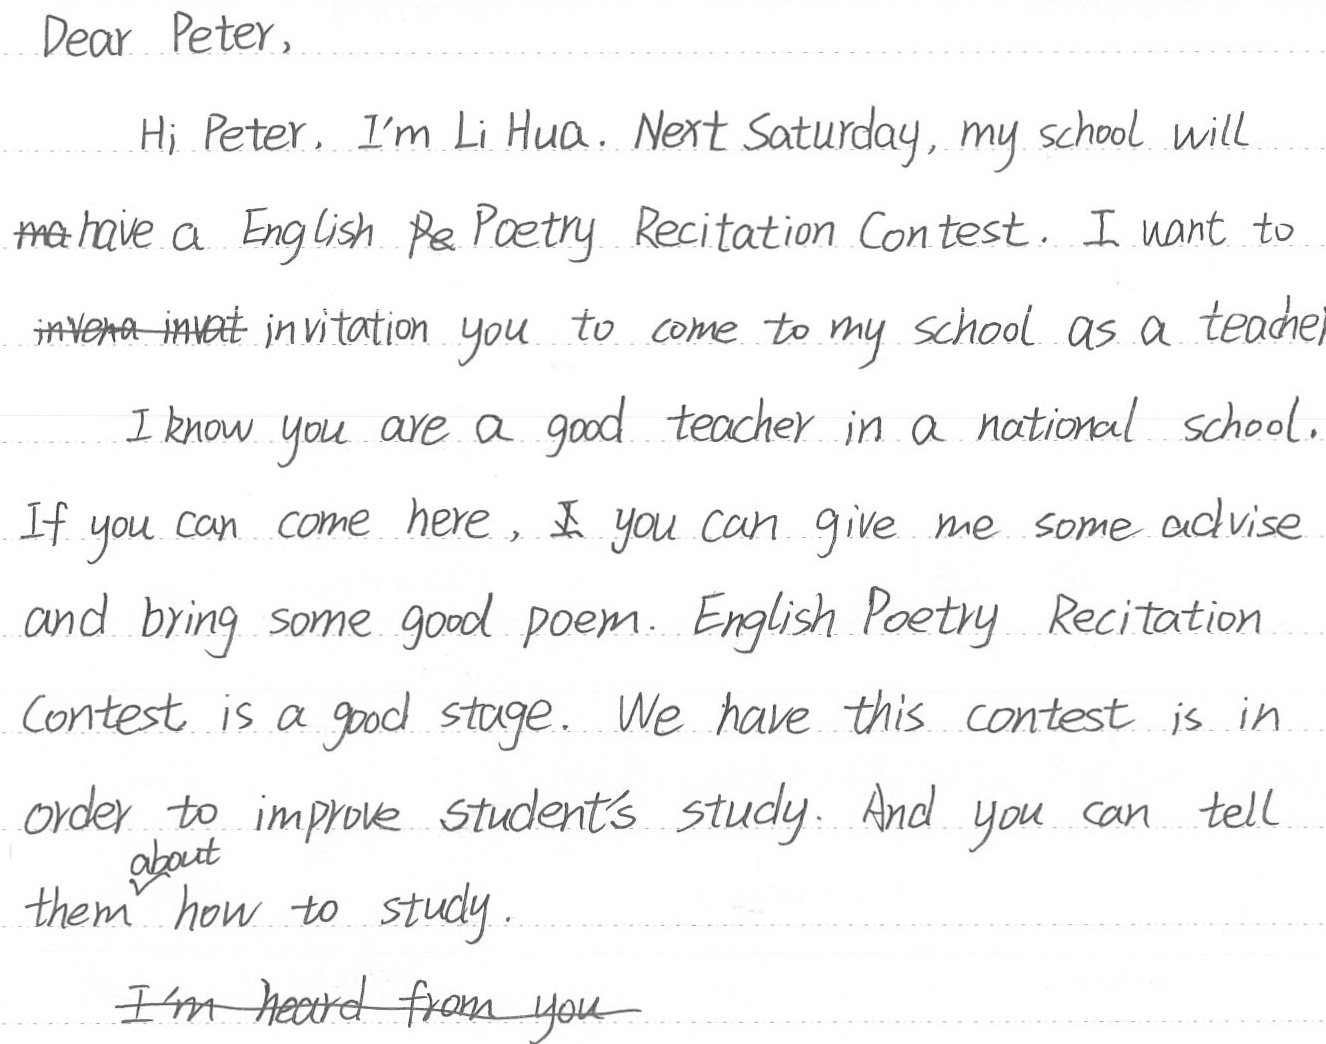 Dear Peter,
Hi Peter. I'm Li Hua. Next Saturday, my school will
ma have a English Pe Poetry Recitation Contest. I want to
invena invat invitation you to come to my school as a teacher
I know you are a good teacher in a national school.
If you can come here, I you can give me some advise
and bring some good poem. English Poetry Recitation
Contest is a good stage. We have this contest is in
order to improve student's study. And you can tell
about
them how to study.
I'm heard from you